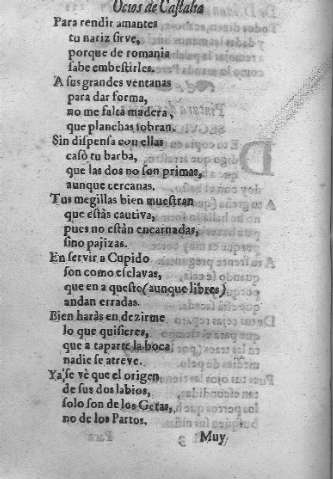 Ocios de Castalia
Para rendir amantes
tu nariz sirve,
porque de romania
sabe embestirles.
A sus grandes ventanas
para dar forma,
no me falta madera,
que planchas sobran.
Sin dispensa con ellas
casò tu barba,
que las dos no son primas,
aunque cercanas.
Tus megillas bien muestran
que estàs cautiva,
pues no estàn encarnadas,
sino pajizas.
En servir a Cupido
son como esclavas,
que en aquesto (aunque libres)
andan erradas.
Bien haràs en dezirme
lo que quisieres,
que a taparte la boca
nadie se atreve.
Ya se vè que el origen
de sus dos labios,
solo son de los Getas,
no de los Partos.
Muy